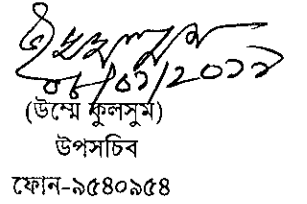 ০৮/০১/২০১৯
(উম্মে কুলসুম)
উপসচিব
ফোন-৯৫৪০৯৫৪